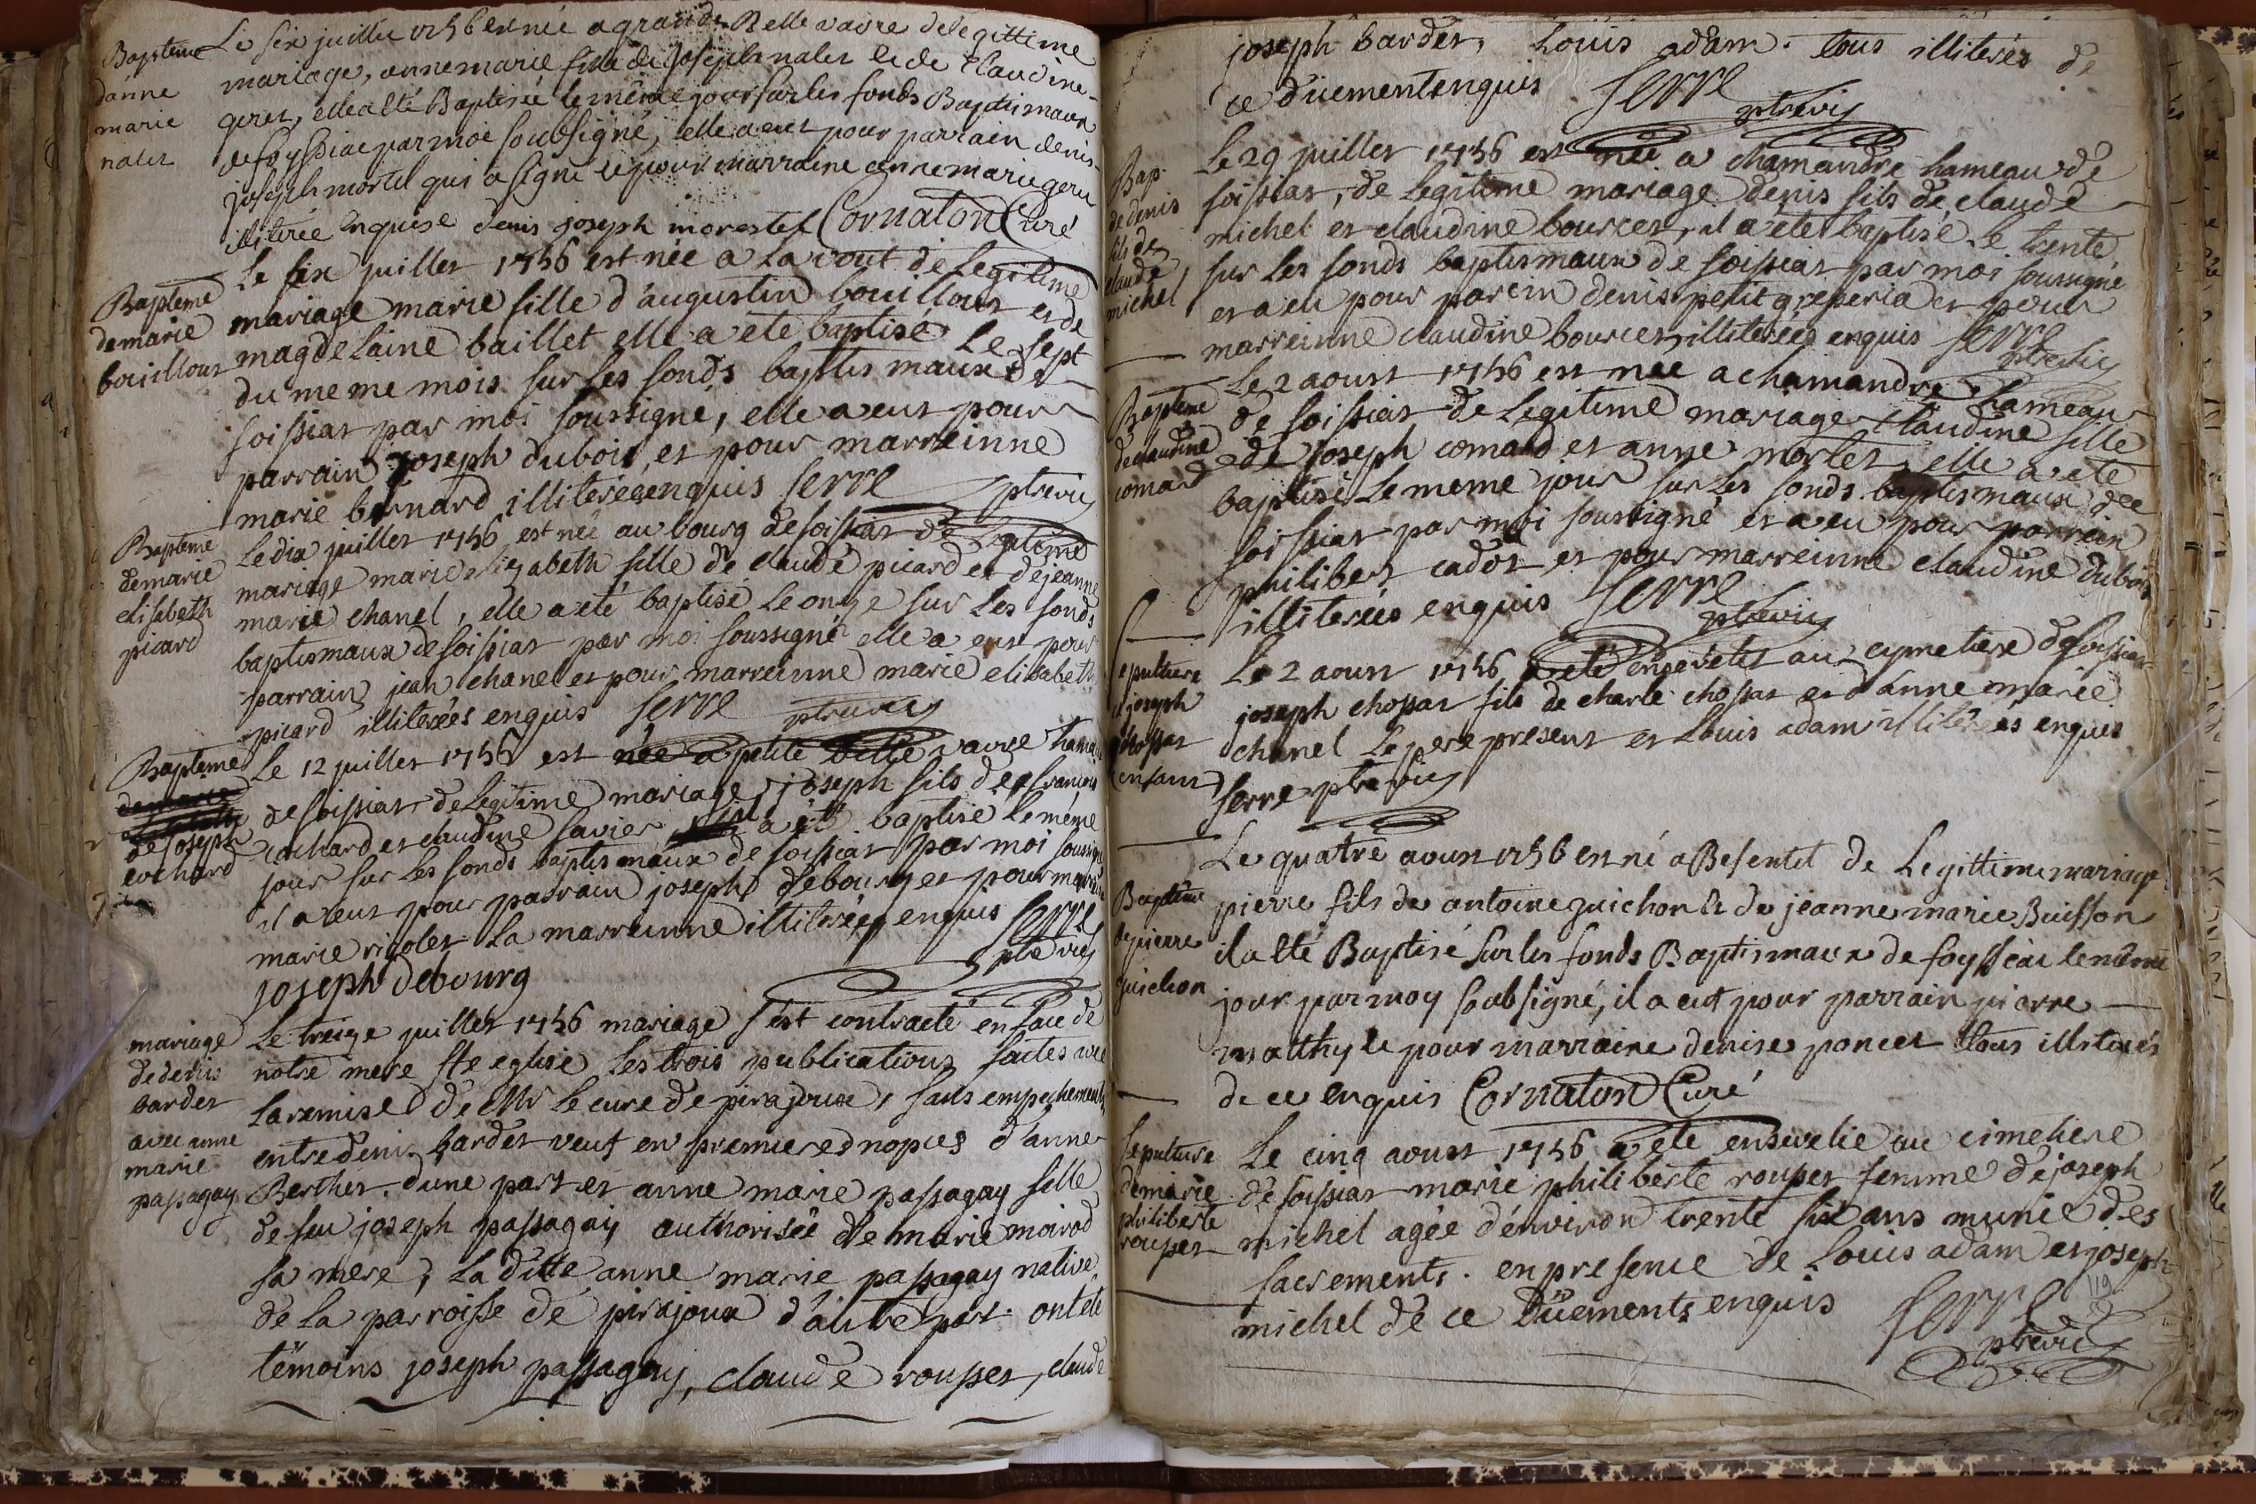 Bapteme
danne
marie
nalet
Le six juillet 1756 est née a grande Belle vavre de legittime
mariage, anne marie fille de joseph nalet et de Claudine
geret, elle a été Baptisée le même jour sur les fonds Baptismaux
de foyssia par moi soubsigné, elle a eut pour parrain denis
joseph mortel qui a signé et pour marraine anne marie geret
illiterée enquise denis joseph morestel Cornaton Curé
Bapteme
de marie
bouilloux
Le six juillet 1756 est née a la vout de legitime
mariage marie fille d'augustin bouilloux et de
magdelaine baillet elle a été baptisé Le sept
du meme mois sur les fonds baptismaux de
foissiat par moi soussigné, elle a eut pour
parrain joseph dubois, et pour marreinne
marie bernard illiterées enquis Serre ptre vic
Bapteme
de marie
elisabeth
picard
Le dix juillet 1756 est née au bourg de foissiat de legitime
mariage marie elizabeth fille de claude picard et de jeanne
marie chanel, elle a été baptisé Le onze sur Les fonds
baptismaux de foissiat par moi soussigné elle a eut pour
parrain jean chanel et pour marreinne marie elisabeth
picard illiterées enquis Serre ptre vic
Bapteme
de joseph
cochard
Le 12 juillet 1756 est née a petite Belle vavre hameau
de foissiat de Legitime mariage joseph fils de francois
cochard et claudine favier il a été baptisé le même
jour sur Les fonds baptismaux de foissiat par moi soussigné
il a eut pour parrain joseph debourg et pour marreinne
marie rigolet La marreinne illiterée enquis Serre
ptre vic
joseph debourg
mariage
de denis
bardet
avec anne
marie
passagay
Le treize juillet 1756 mariage s'est contracté en face de
notre mere ste eglise Les trois publications faites avec
La remise de Mr Le curé de pirajoux, sans empechement
entre denis bardet veuf en premieres nopces d'anne
Berthet. d'une part et anne marie passagay fille
de feu joseph passagay authorisée de marie moirod
sa mere, La ditte anne marie passagay native
de La parroisse de pirajoux d'autre part. ont été
témoins joseph passagay, claude rousset, claude
joseph bardet, Louis adam. tous illiterés de
ce duement enquis Serre
ptre vic
Bap.
de denis
fils de
claude
michel
Le 29 juillet 1756 est née a chamandre hameau de
foissiat, de Legitime mariage denis fils de claude
michel et claudine bourcet, il a été baptisé Le trente
sur Les fonds baptismaux de foissiat par moi soussigné
et a eu pour parein denis petit et pour
marreinne claudine bourcet, illiterées enquis Serre
ptre vic
Bapteme
de claudine
comard
Le 2 aoust 1756 est née a chamandre hameau
de foissiat de Legitime mariage Claudine fille
de joseph comard et anne mortet, elle a été
baptisé Le meme jour sur Les fonds baptismaux de
foissiat par moi soussigné et a eu pour parrein
philibert cadot et pour marreinne claudine dubois
illiterées enquis Serre
ptre vic
sepulture
de joseph
chossat
enfant
Le 2 aoust 1756 a été ensevelit au cymetiere de foissiat
joseph chossat fils de charle chossat et d'anne marie
chanel Le pere present et Louis adam illiterés enquis
Serre ptre vic
Bapteme
de pierre
guichon
Le quatre aoust 1756 est né a Besentet de Legittime mariage
pierre fils de antoine guichon et de jeanne marie Buisson
il a été Baptisé sur les fonds Baptismaux de foyssiat le même
jour par moy soubsigné, il a eut pour parrain pierre
mathy et pour marraine denise poncet tous illiterés
de ce enquis Cornaton Curé
sepulture
de marie
philiberte
rouset
Le cinq aoust 1756 a été ensevelie au cimetiere
de foissiat marie philiberte rousset femme de joseph
michel agée d'environ trente six ans munie des
sacrements. en presence de Louis adam et joseph
michel de ce duement enquis Serre
ptre vic
119